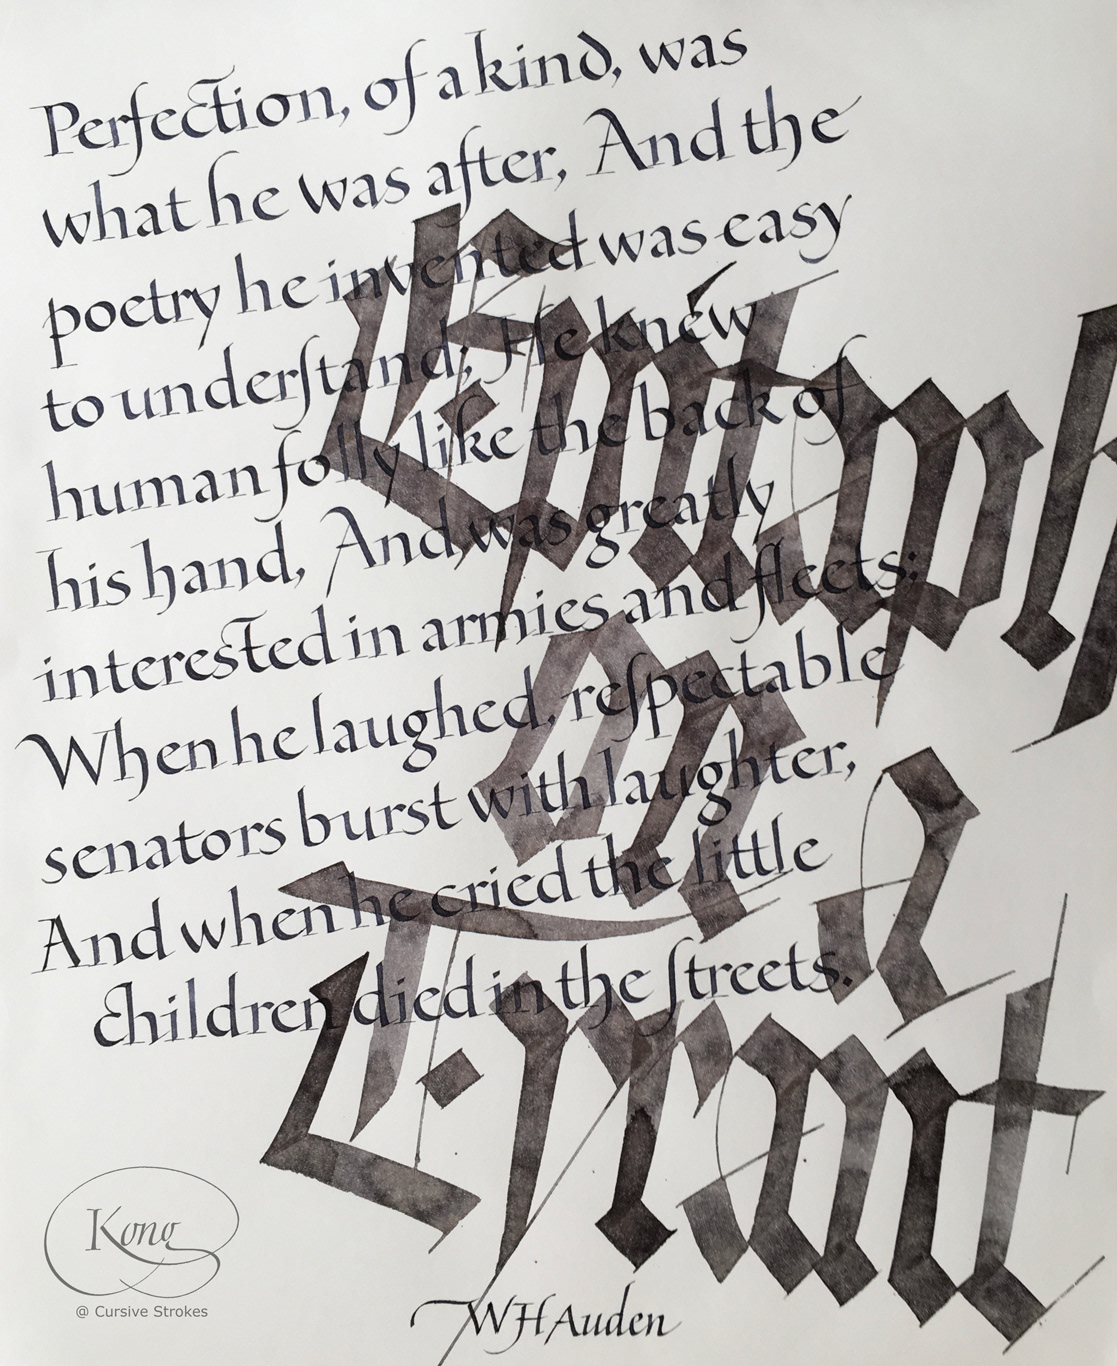 Perfection, of a kind, was
what he was after, And the
poetry he invented was easy
to underſtand; He knew
human folly like the back of
his hand, And was greatly
interested in armies and fleets;
When he laughed, reſpectable
senators burst with laughter,
And when he cried the little
children died in the ſtreets.
Epitaph
On a
Tyrant
WH Auden
Kong
@ Cursive Strokes